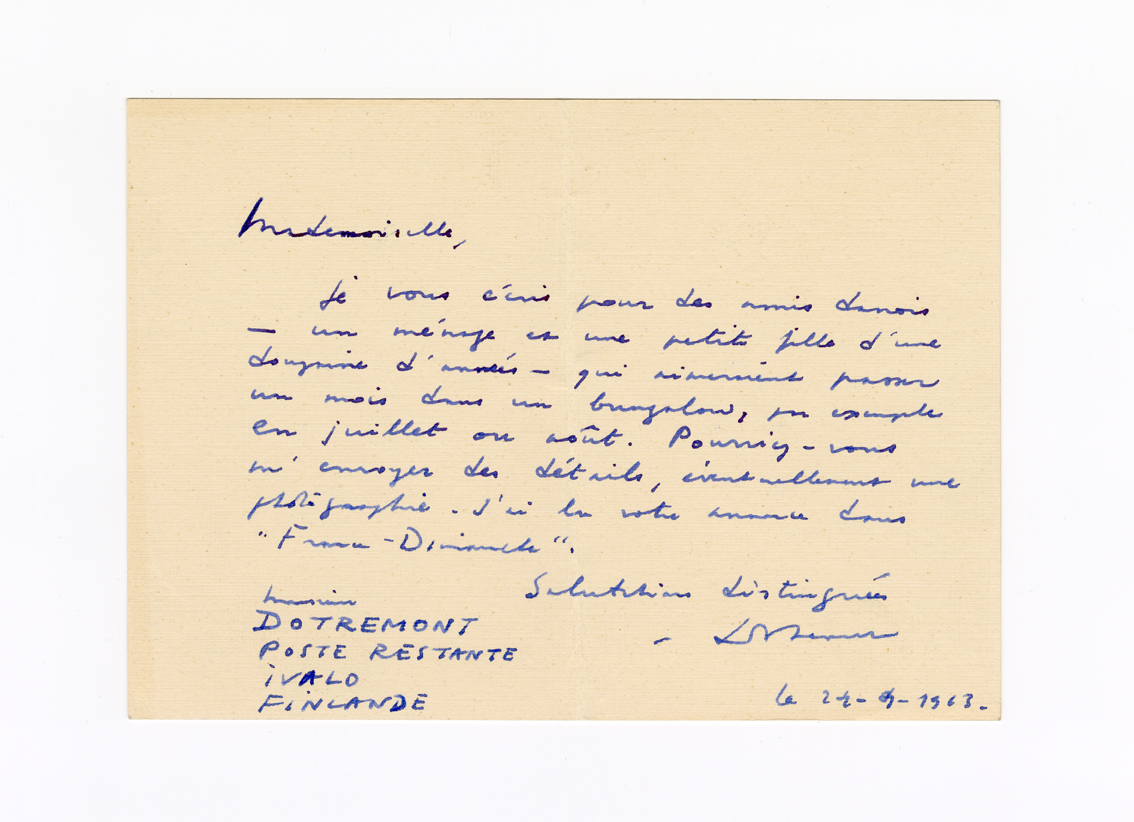 Mademoiselle,
Je vous écris pour des amis danois
— un ménage et une petite fille d'une
douzaine d'années — qui aimeraient passer
un mois dans un bungalow, par exemple
en juillet ou août. Pourriez-vous
m'envoyer des détails, éventuellement une
photographie. J'ai lu votre annonce dans
"France-Dimanche".
Salutations distinguées
Dotremont
Monsieur
DOTREMONT
POSTE RESTANTE
iVALO
FiNLANDE
le 24-4-1963.